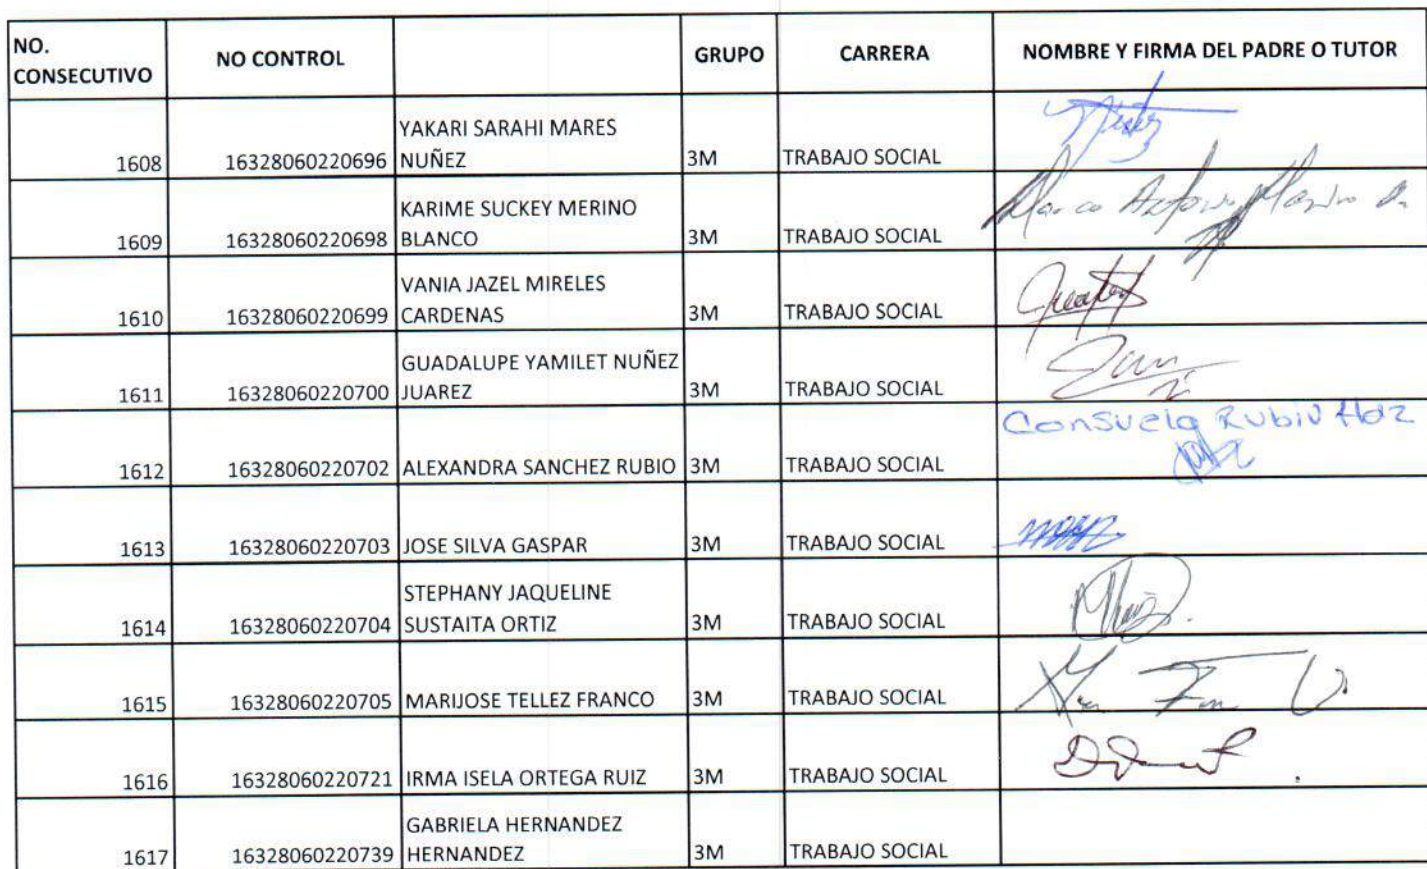 NO. CONSECUTIVO NO CONTROL GRUPO CARRERA NOMBRE Y FIRMA DEL PADRE O TUTOR
1608 16328060220696 YAKARI SARAHI MARES NUÑEZ 3M TRABAJO SOCIAL
1609 16328060220698 KARIME SUCKEY MERINO BLANCO 3M TRABAJO SOCIAL Marco Antonio
1610 16328060220699 VANIA JAZEL MIRELES CARDENAS 3M TRABAJO SOCIAL
1611 16328060220700 GUADALUPE YAMILET NUÑEZ JUAREZ 3M TRABAJO SOCIAL
1612 16328060220702 ALEXANDRA SANCHEZ RUBIO 3M TRABAJO SOCIAL Consuelo Rubio Hdz
1613 16328060220703 JOSE SILVA GASPAR 3M TRABAJO SOCIAL
1614 16328060220704 STEPHANY JAQUELINE SUSTAITA ORTIZ 3M TRABAJO SOCIAL
1615 16328060220705 MARIJOSE TELLEZ FRANCO 3M TRABAJO SOCIAL
1616 16328060220721 IRMA ISELA ORTEGA RUIZ 3M TRABAJO SOCIAL
1617 16328060220739 GABRIELA HERNANDEZ HERNANDEZ 3M TRABAJO SOCIAL